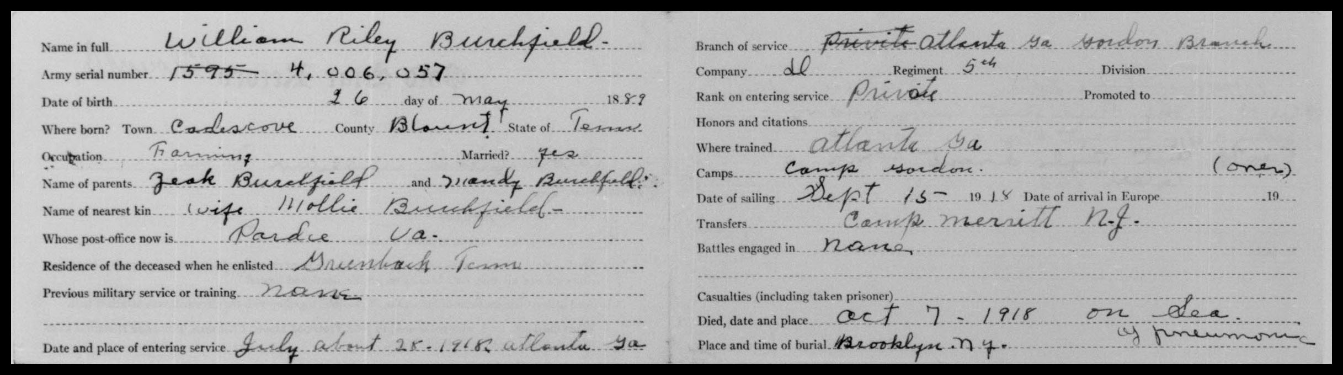 Name in full William Riley Burchfield-
Army serial number 1595 4,006,057
Date of birth 26 day of may 1889
Where born? Town Cadescove County Blount State of Tenn.
Occupation Farming Married? yes
Name of parents Zeak Burchfield and Mandy Burchfield.
Name of nearest kin wife Mollie Burchfield-
Whose post-office now is Pardee Va.
Residence of the deceased when he enlisted Greenback Tenn
Previous military service or training none
Date and place of entering service July about 28-1918. atlanta Ga
Branch of service Private Atlanta Ga Gordon Branch
Company D Regiment 5th Division
Rank on entering service Private Promoted to
Honors and citations
Where trained atlanta Ga
Camps Camp Gordon. (over)
Date of sailing Sept 15- 1918 Date of arrival in Europe 19
Transfers Camp Merritt N.J.
Battles engaged in none
Casualties (including taken prisoner)
Died, date and place Oct 7-1918 on Sea.
of pneumonia
Place and time of burial Brooklyn. N.y.